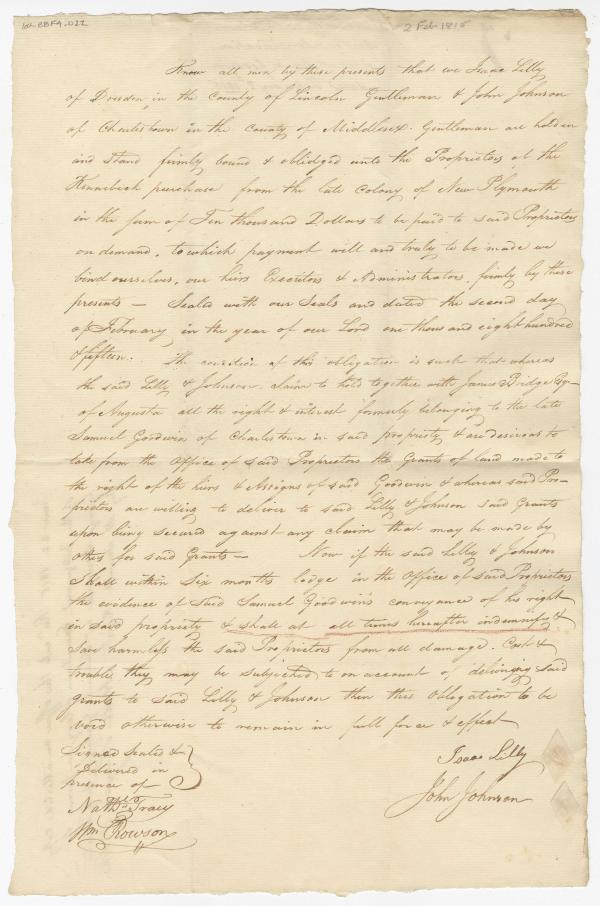 W-BBF4.D22
2 Feb 1815
Know all men by these presents that we Isaac Lilly
of Dresden in the County of Lincoln Gentleman & John Johnson
of Charlestown in the county of Middlesex. Gentleman are holden
and Stand firmly bound & oblidged unto the Proprietors of the
Kennebeck purchase from the late Colony of New Plymouth
in the sum of Ten thousand Dollars to be paid to said Proprietors
on demand, to which payment will and truly to be made we
bind ourselves, our heirs Executors & Administrators, firmly by these
presents — Sealed with our Seals and dated the second day
of February in the year of our Lord one thousand eight hundred
& fifteen. The condition of this obligation is such that whereas
the said Lilly & Johnson claim to hold together with James Bridge Esq
of Augusta all the right & interest formerly belonging to the late
Samuel Goodwin of Charlestown in said propriety & are desirous to
take from the Office of said Proprietors the Grants of land made to
the right of the heirs & Assigns of said Goodwin & whereas said Pro-
prietors are willing to deliver to said Lilly & Johnson said Grants
upon being secured against any claim that may be made by
others for said Grants — Now if the said Lilly & Johnson
Shall within Six months lodge in the Office of said Proprietors
the evidence of said Samuel Goodwin's conveyance of his right
in said propriety & shall at all times hereafter indemnify &
Save harmless the said Proprietors from all damage. Cost &
trouble they may be subjected to on account of delivering said
grants to said Lilly & Johnson then this Obligation to be
void otherwise to remain in full force & effect
Signed Sealed &
Delivered in
presence of
Isaac Lilly
John Johnson
Nathl. Tracy
Wm Rowson